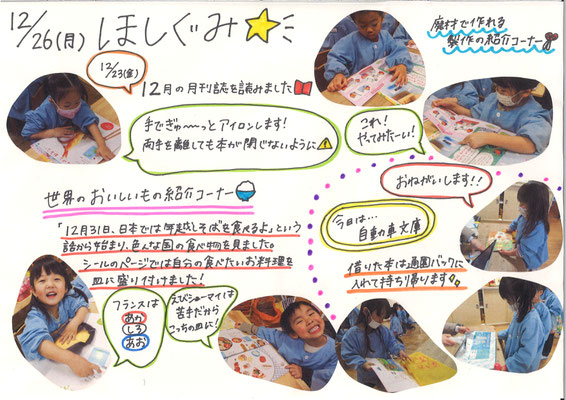 12/26(月) ほしぐみ
12/23(金)
12月の月刊誌を読みました
廃材で作れる
製作の紹介コーナー
手でぎゅ〜〜っとアイロンします!
両手を離しても本が閉じないように
これ!
やってみたーい!
世界のおいしいもの紹介コーナー
「12月31日、日本では年越しそばを食べるよ」という
話から始まり、色んな国の食べ物を見ました。
シールのページでは自分の食べたいお料理を
皿に盛り付けました!
フランスは
あか
しろ
あお
えびシューマイは
苦手だから
こっちの皿に!
おねがいします!!
今日は…
自動車文庫
借りた本は通園バックに
入れて持ち帰ります